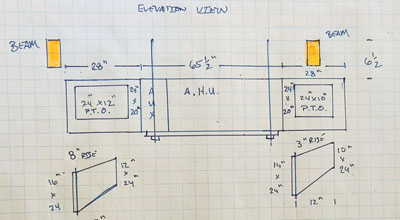 ELEVATION VIEW
BEAM
BEAM
28"
65 1/2"
28"
6 1/2
24" x 12"
P.T.O.
24" x 20"
AUX
A.H.U.
24" x 20"
24" x 10"
P.T.O.
8" RISE
16" x 24
12" x 24"
3" RISE
14" x 24"
10" x 24"
12"